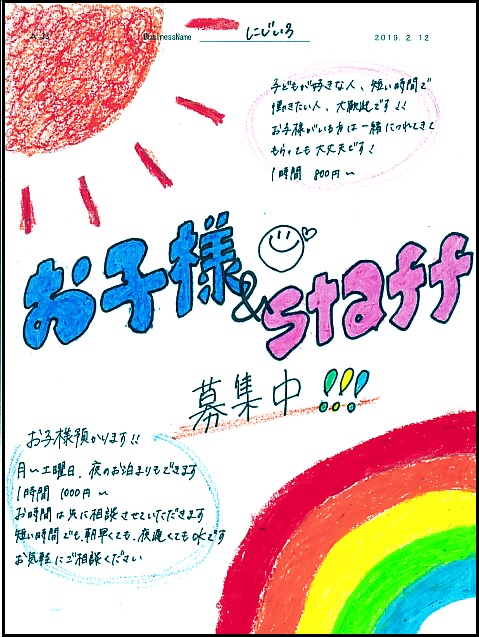 BusinessName にじいろ 2019. 2. 12
子どもが好きな人、短い時間で
働きたい人、大歓迎です!!
お子様がいる方は一緒につれてきて
もらっても大丈夫です!
1時間 800円〜
お子様
&staff
募集中!!!
お子様預かります!!
月〜土曜日、夜のお泊まりもできます
1時間 1000円〜
お時間は先に相談させていただきます
短い時間でも、朝早くても、夜遅くてもokです
お気軽にご相談ください